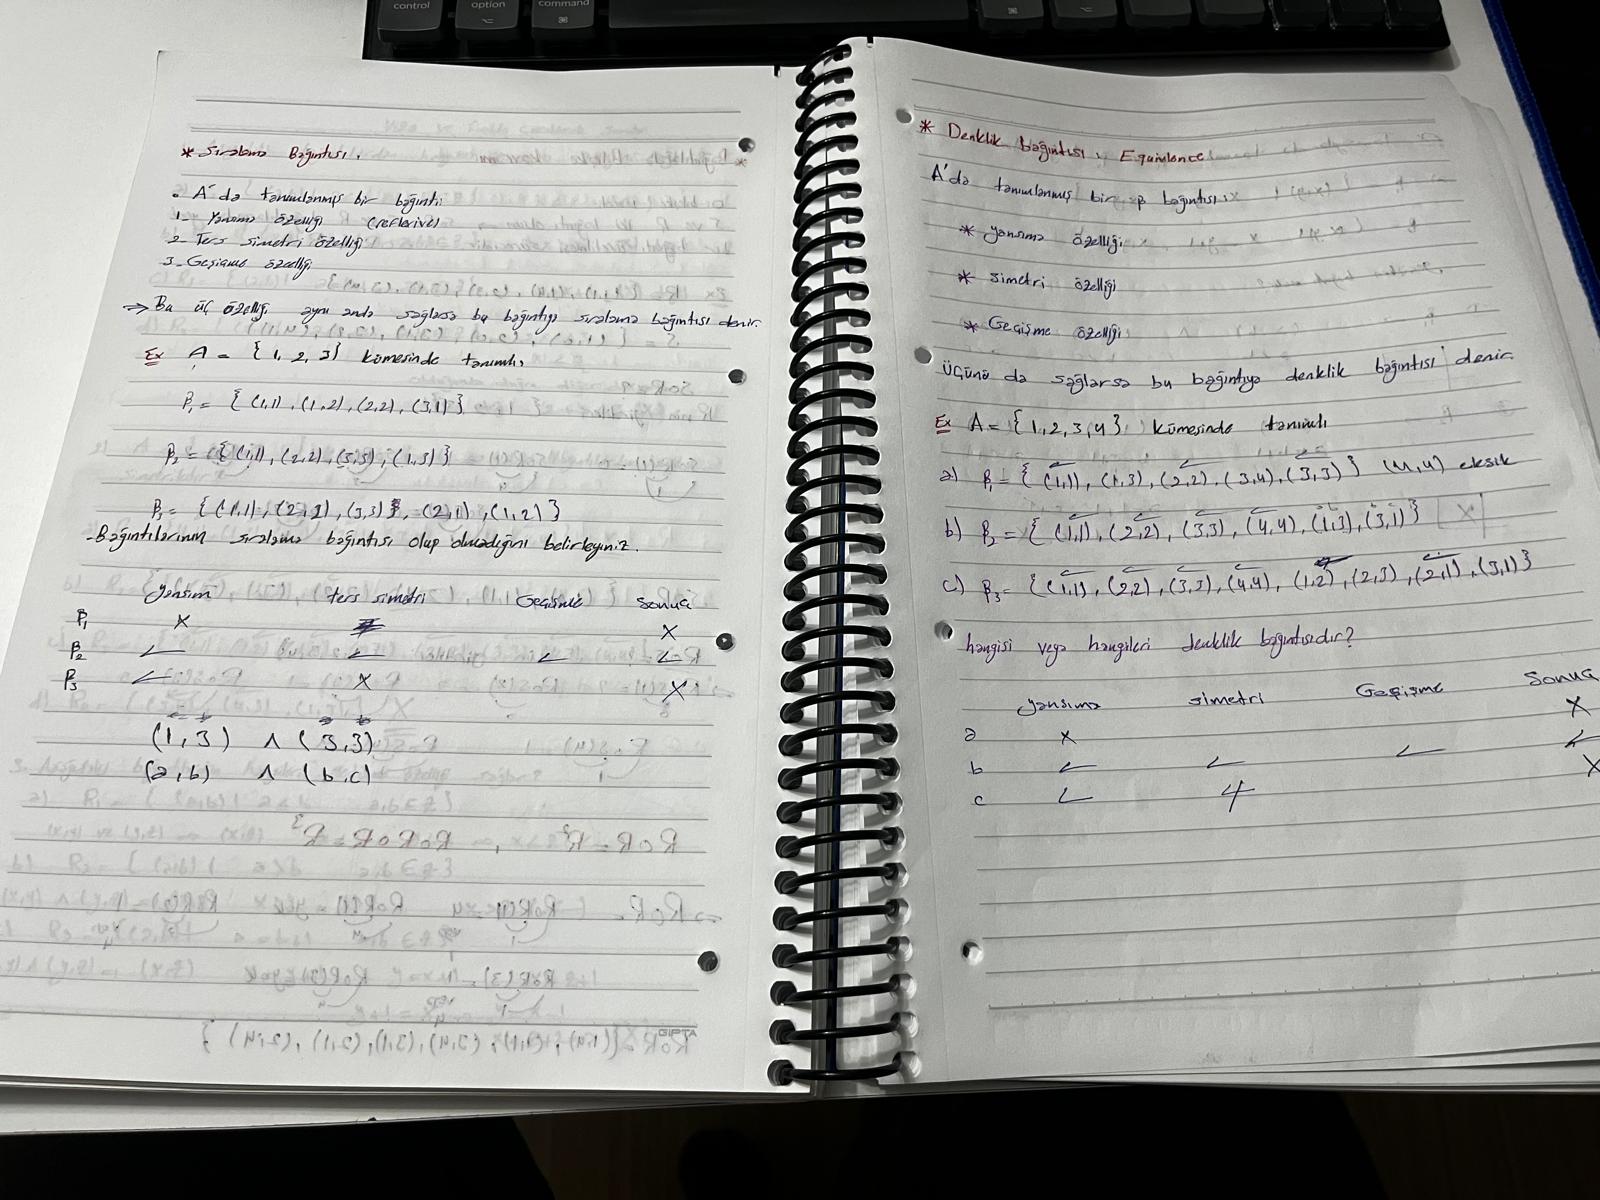 control
option
command
* Sıralama Bağıntısı.
. A'da tanımlanmış bir bağıntı:
1- Yansıma özelliği (reflexive)
2- Ters simetri özelliği
3- Geçişme özelliği
=> Bu üç özelliği aynı anda sağlarsa bu bağıntıya sıralama bağıntısı denir.
Ex A = {1, 2, 3} kümesinde tanımlı,
β₁ = { (1,1), (1,2), (2,2), (3,1) }
β₂ = { (1,1), (2,2), (3,3), (1,3) }
β₃ = { (1,1), (2,2), (3,3), (2,1), (1,2) }
-Bağıntılarının sıralama bağıntısı olup olmadığını belirleyiniz.
yansım ters simetri Geçişme sonuç
β₁ x x
β₂ ✓ ✓ ✓ ✓
β₃ ✓ x x
(1,3) ∧ (3,3)
(a,b) ∧ (b,c)
GIPTA
* Denklik bağıntısı, Equivalence
A'da tanımlanmış bir β bağıntısı:
* yansıma özelliği
* simetri özelliği
* Geçişme özelliği
üçünü de sağlarsa bu bağıntıya denklik bağıntısı denir.
Ex A = {1,2,3,4} kümesinde tanımlı
a) β₁ = { (1,1), (1,3), (2,2), (3,4), (3,3) } (4,4) eksik
b) β₂ = { (1,1), (2,2), (3,3), (4,4), (1,3), (3,1) }
c) β₃ = { (1,1), (2,2), (3,3), (4,4), (1,2), (2,3), (2,1), (3,1) }
hangisi veya hangileri denklik bağıntısıdır?
yansıma simetri Geçişme sonuç
a x x
b ✓ ✓ ✓ ✓
c ✓ x